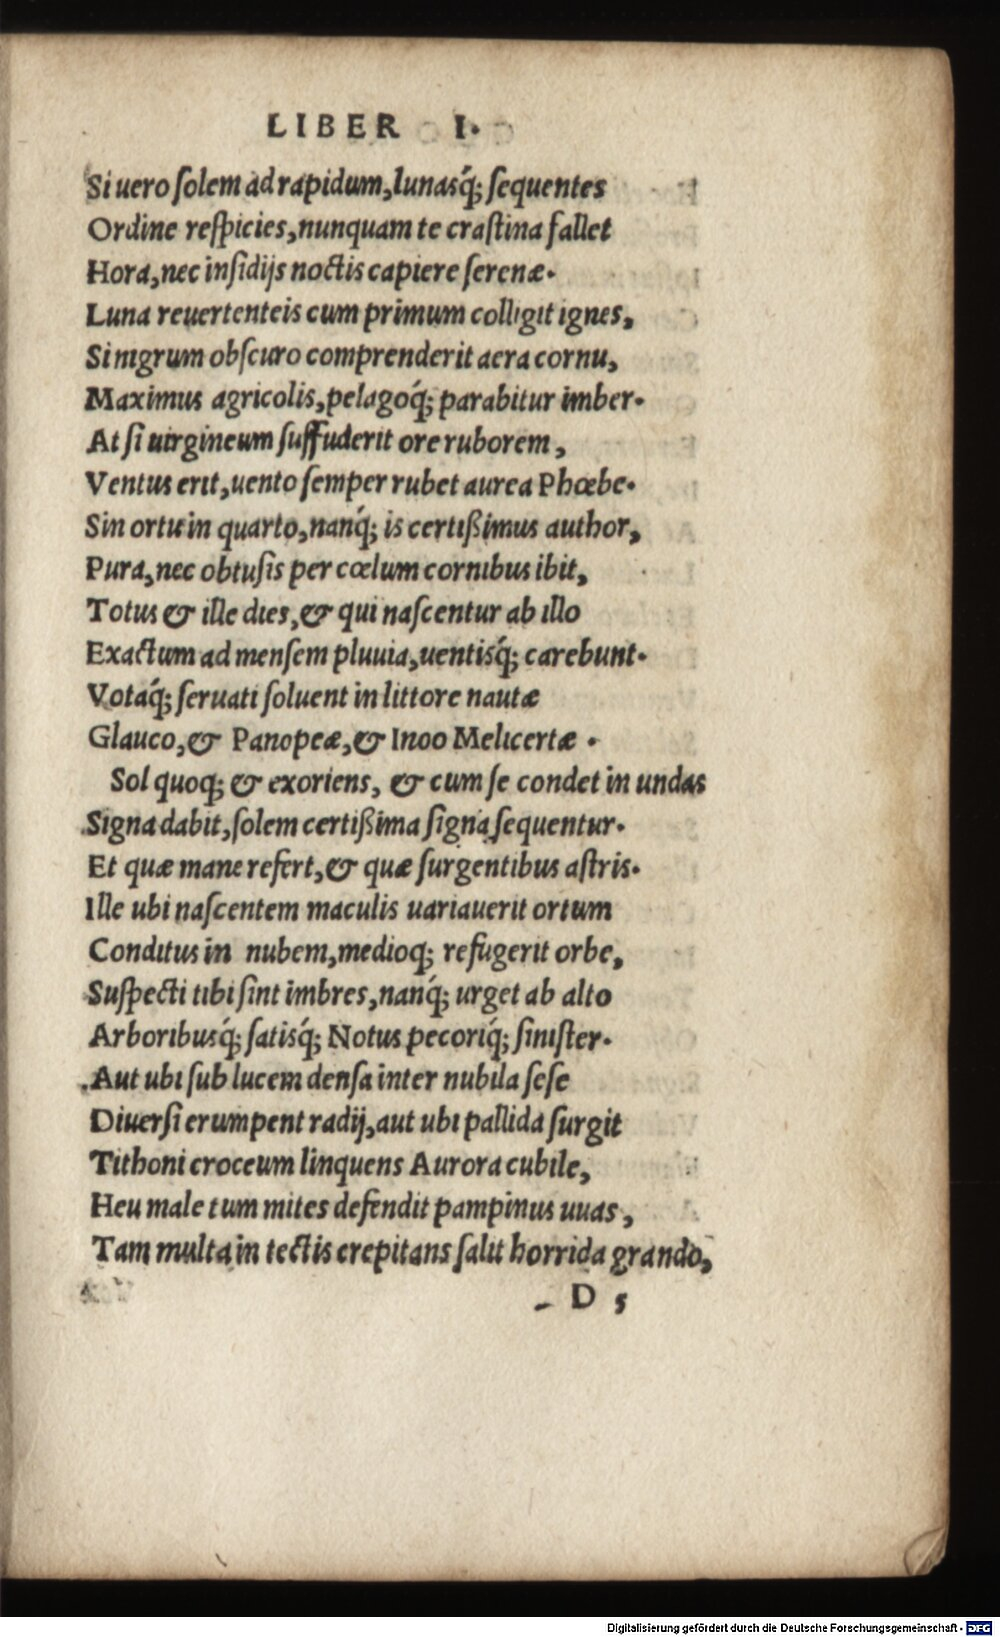 LIBER I.
Si uero ſolem ad rapidum, lunasq́; ſequentes
Ordine reſpicies, nunquam te craſtina fallet
Hora, nec inſidijs noctis capiere ſerenæ.
Luna reuertenteis cum primum colligit ignes,
Si nigrum obſcuro comprenderit aera cornu,
Maximus agricolis, pelagoq́; parabitur imber.
At ſi uirgineum ſuffuderit ore ruborem,
Ventus erit, uento ſemper rubet aurea Phœbe.
Sin ortu in quarto, nanq́; is certißimus author,
Pura, nec obtuſis per cœlum cornibus ibit,
Totus & ille dies, & qui naſcentur ab illo
Exactum ad menſem pluuia, uentisq́; carebunt.
Votaq́; ſeruati ſoluent in littore nautæ
Glauco, & Panopeæ, & Inoo Melicertæ.
Sol quoq; & exoriens, & cum ſe condet in undas
Signa dabit, ſolem certißima ſigna ſequentur.
Et quæ mane refert, & quæ ſurgentibus aſtris.
Ille ubi naſcentem maculis uariauerit ortum
Conditus in nubem, medioq; refugerit orbe,
Suſpecti tibi ſint imbres, nanq́; urget ab alto
Arboribusq́; ſatisq́; Notus pecoriq́; ſiniſter.
Aut ubi ſub lucem denſa inter nubila ſeſe
Diuerſi erumpent radij, aut ubi pallida ſurgit
Tithoni croceum linquens Aurora cubile,
Heu male tum mites defendit pampinus uuas,
Tam multa in tectis crepitans ſalit horrida grando,
D 5
Digitalisierung gefördert durch die Deutsche Forschungsgemeinschaft - DFG